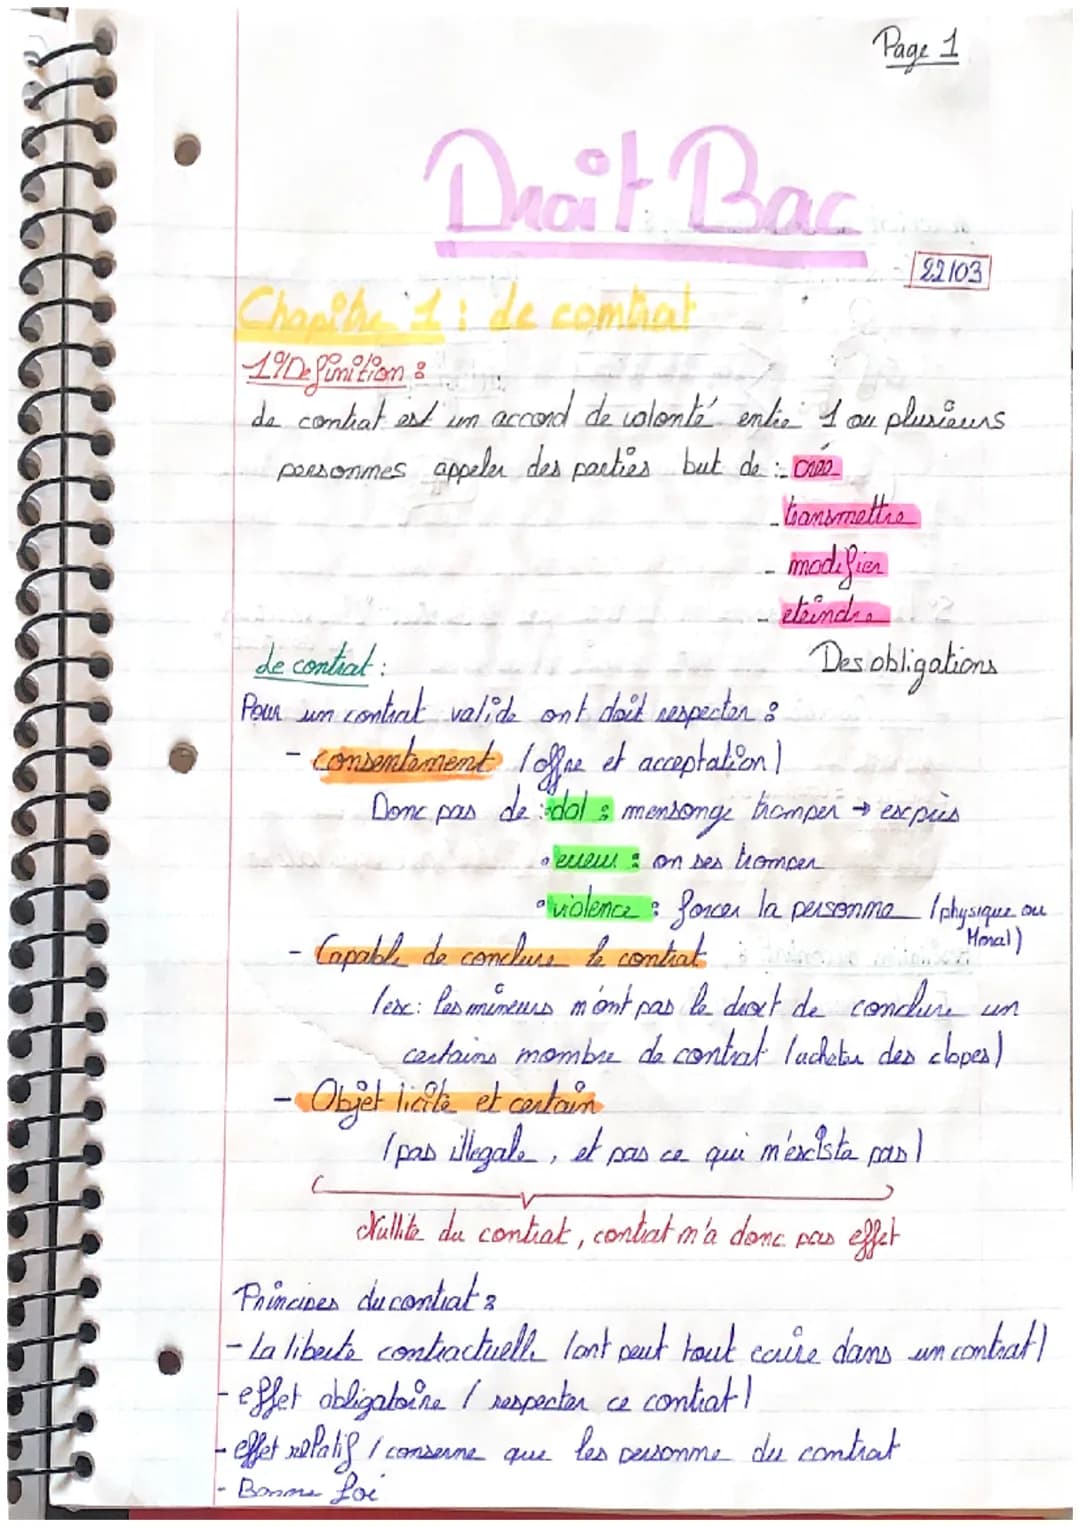 Page 1
Droit Bac
22/03
Chapitre 1 : Le contrat
1°/ Definition :
Le contrat est un accord de volonté entre 1 ou plusieurs
personnes appeler des parties but de : - créé
- transmettre
- modifier
- eteindre
Des obligations
Le contrat :
Pour un contrat valide ont doit respecter :
- consentement (offre et acceptation)
Donc pas de : •dol : mensonge tromper → exprès
• erreur : on ses tromper
• violence : forcer la personne (physique ou
Moral)
- Capable de conclure le contrat
(ex : les mineurs n'ont pas le droit de conclure un
certains nombre de contrat (acheter des clopes)
- Objet licite et certain
(pas illegale, et pas ce qui n'existe pas)
Nullite du contrat, contrat n'a donc pas effet
Principes du contrat :
- La liberte contractuelle (ont peut tout ecrire dans un contrat)
- effet obligatoire (respecter ce contrat)
- effet relatif (conserne que les personne du contrat
- Bonne foi